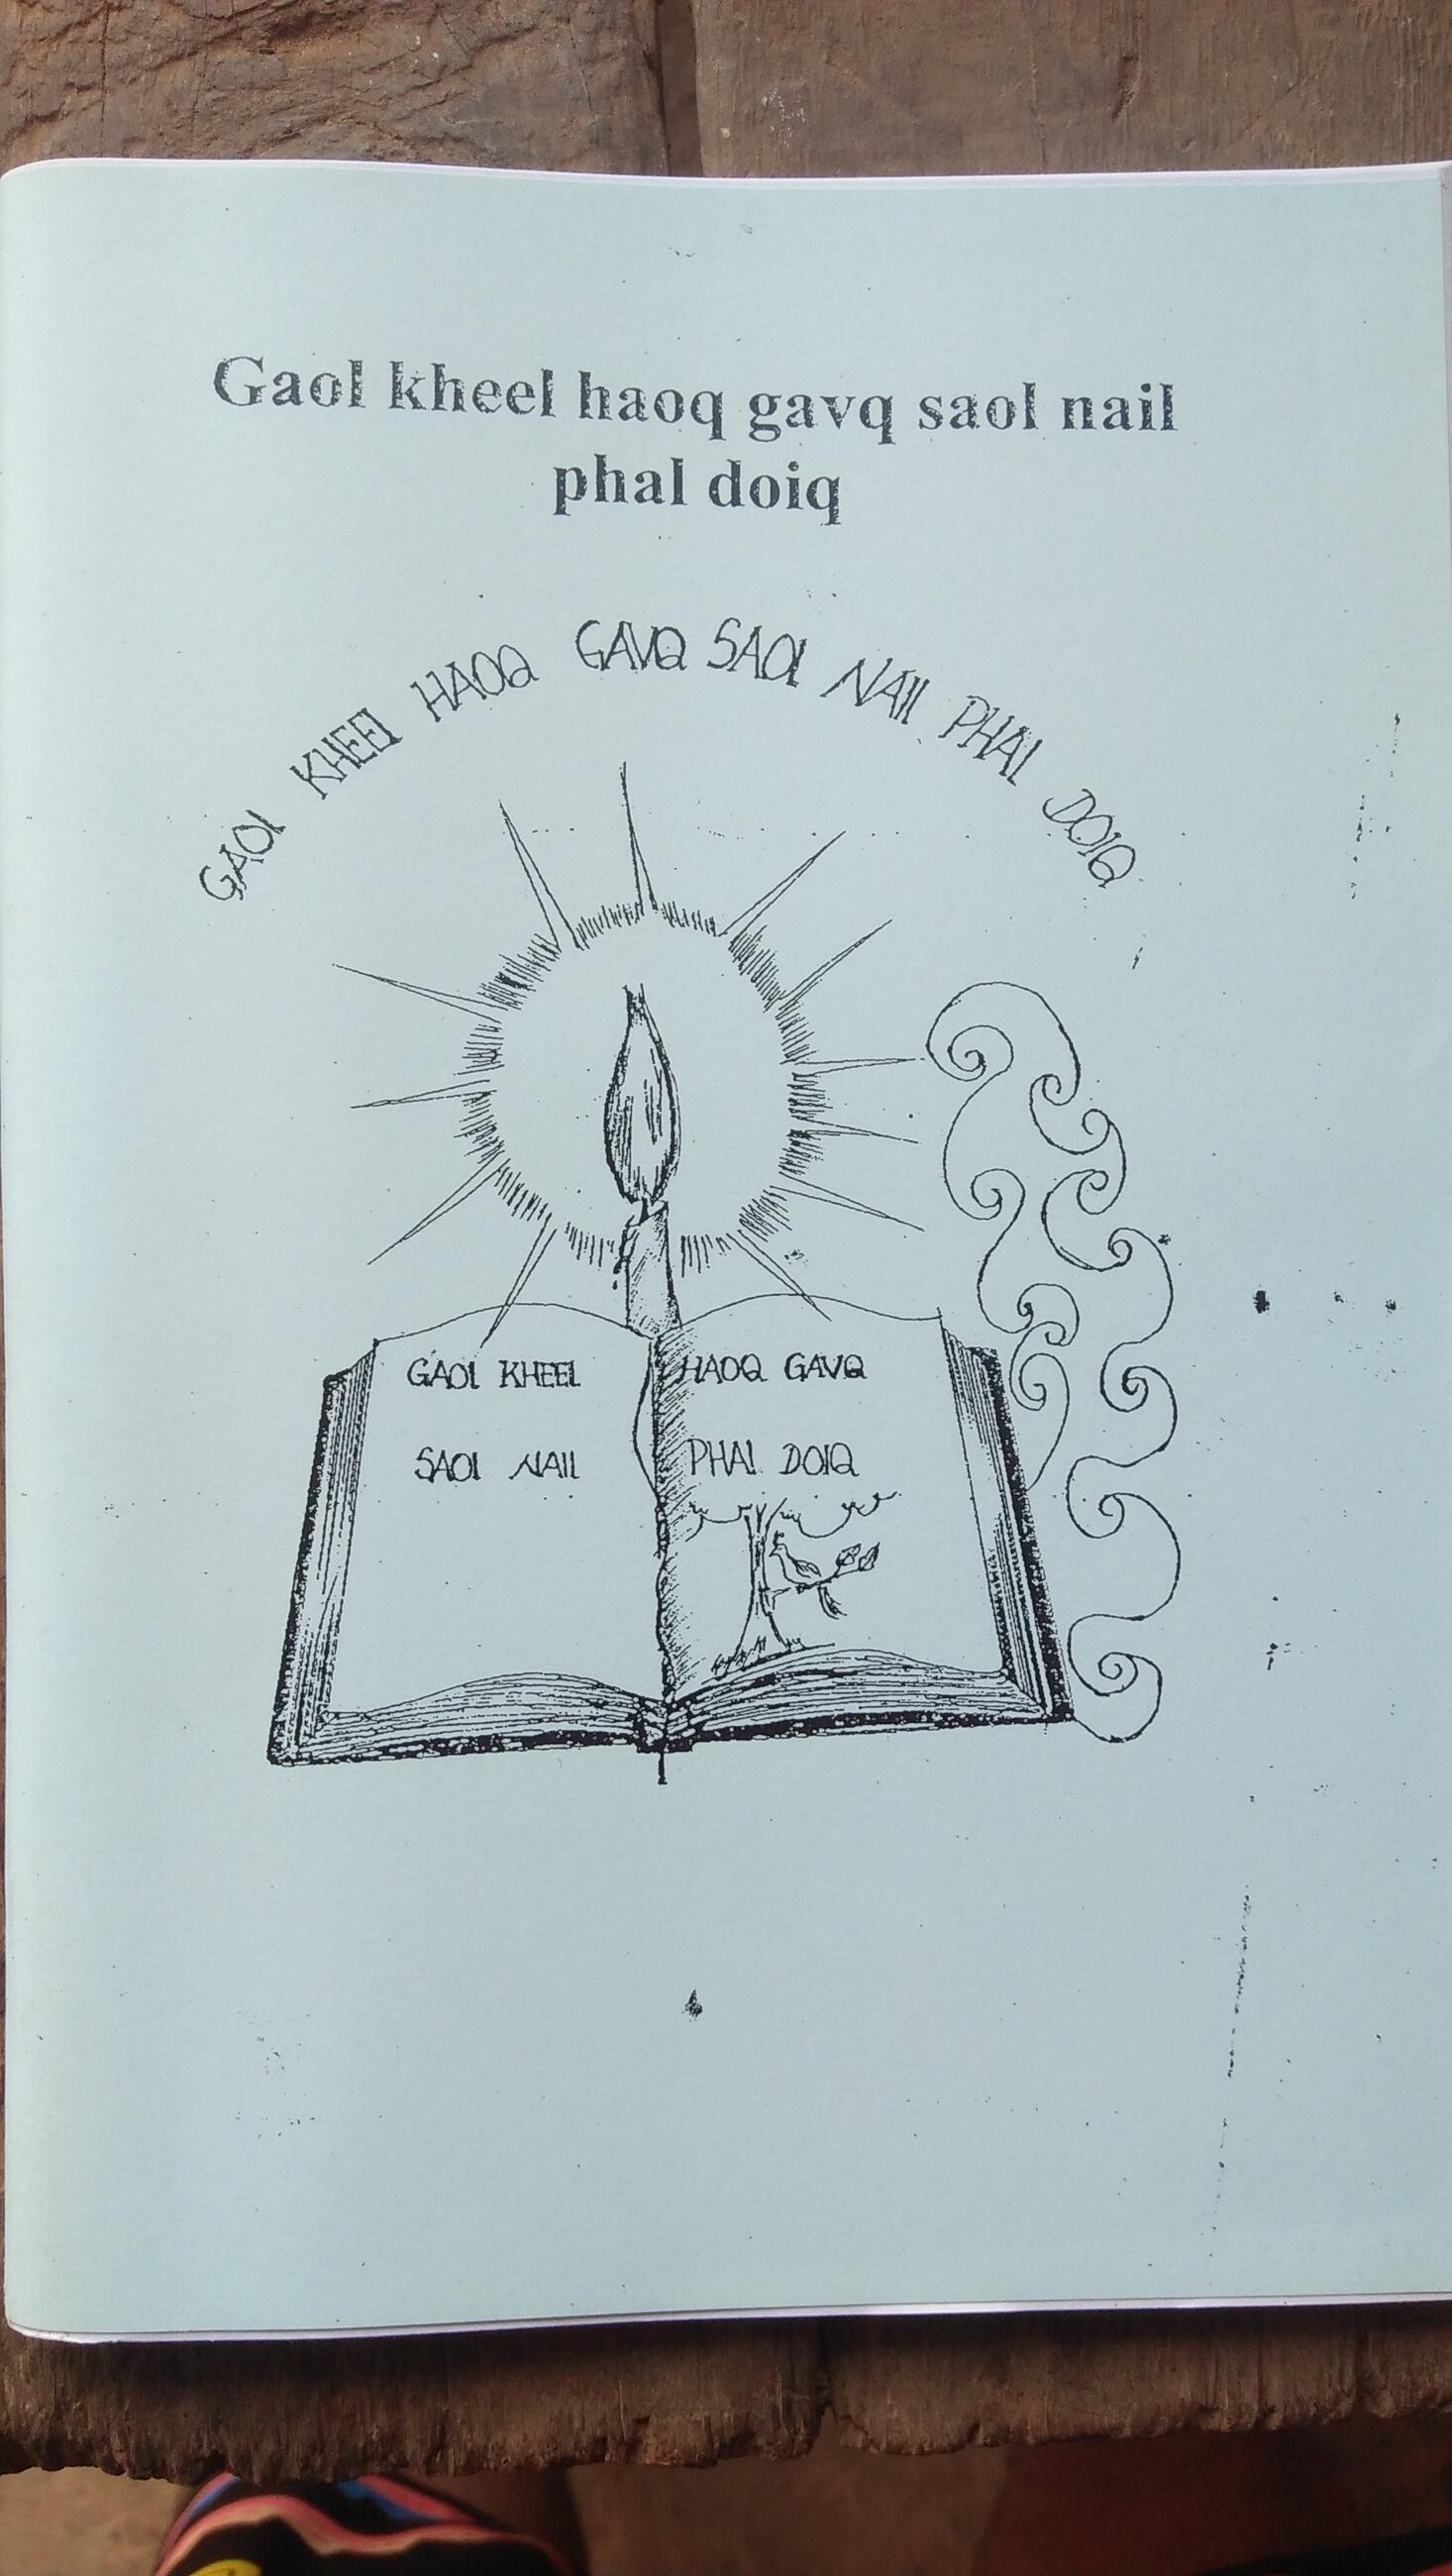 Gaol kheel haoq gavq saol nail
phal doiq
GAOl KHEEl HAOQ GAVQ SAOl NAIl PHAl DOIQ
GAOl KHEEL HAOQ GAVQ
SAOl NAIL PHAl DOIQ